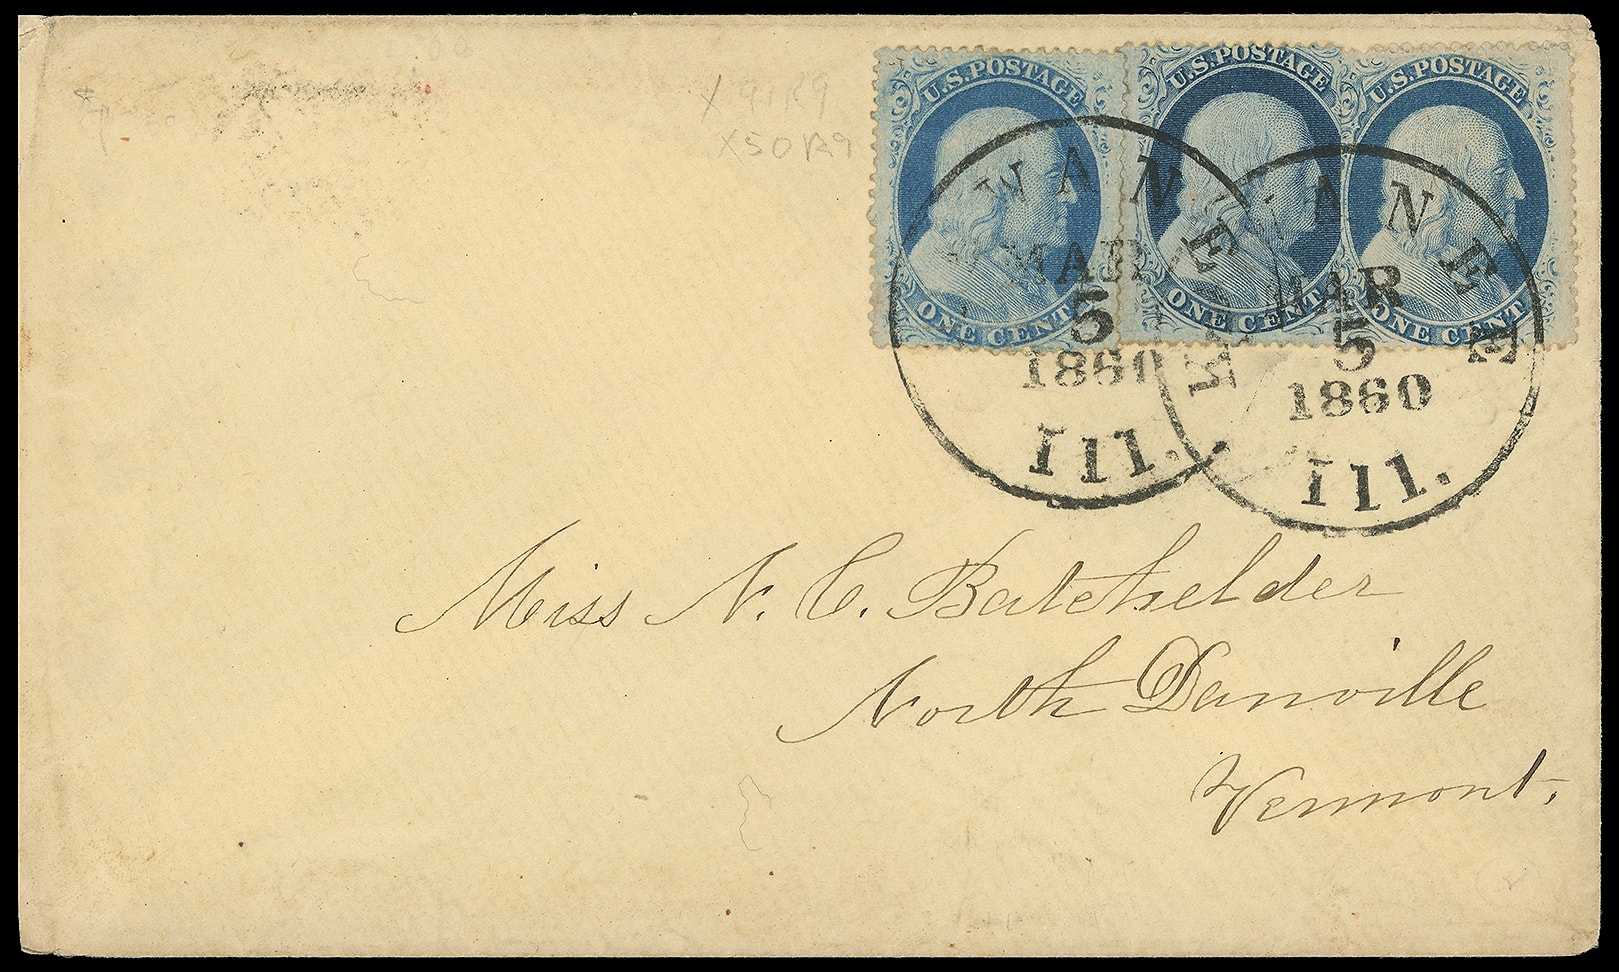 X 91R9
X50R9
U.S. POSTAGE
ONE CENT
U.S. POSTAGE
ONE CENT
U.S. POSTAGE
ONE CENT
WANEE
MAR
5
1860
Ill.
KEWANEE
MAR
5
1860
Ill.
Miss N. C. Batchelder
North Danville
Vermont.